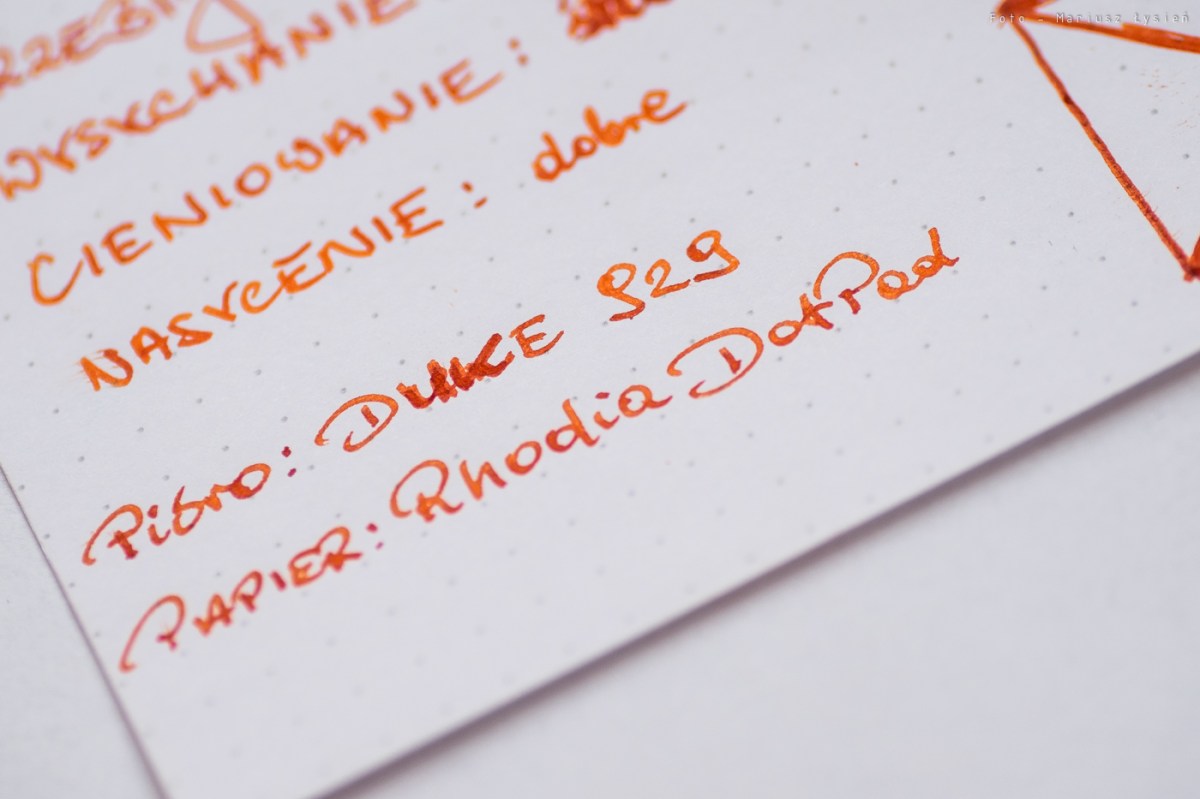 Foto - Mariusz Łysień
WYSYCHANIE
CIENIOWANIE :
NASYCENIE : dobre
Pióro : DUKE 929
PAPIER : Rhodia DotPad